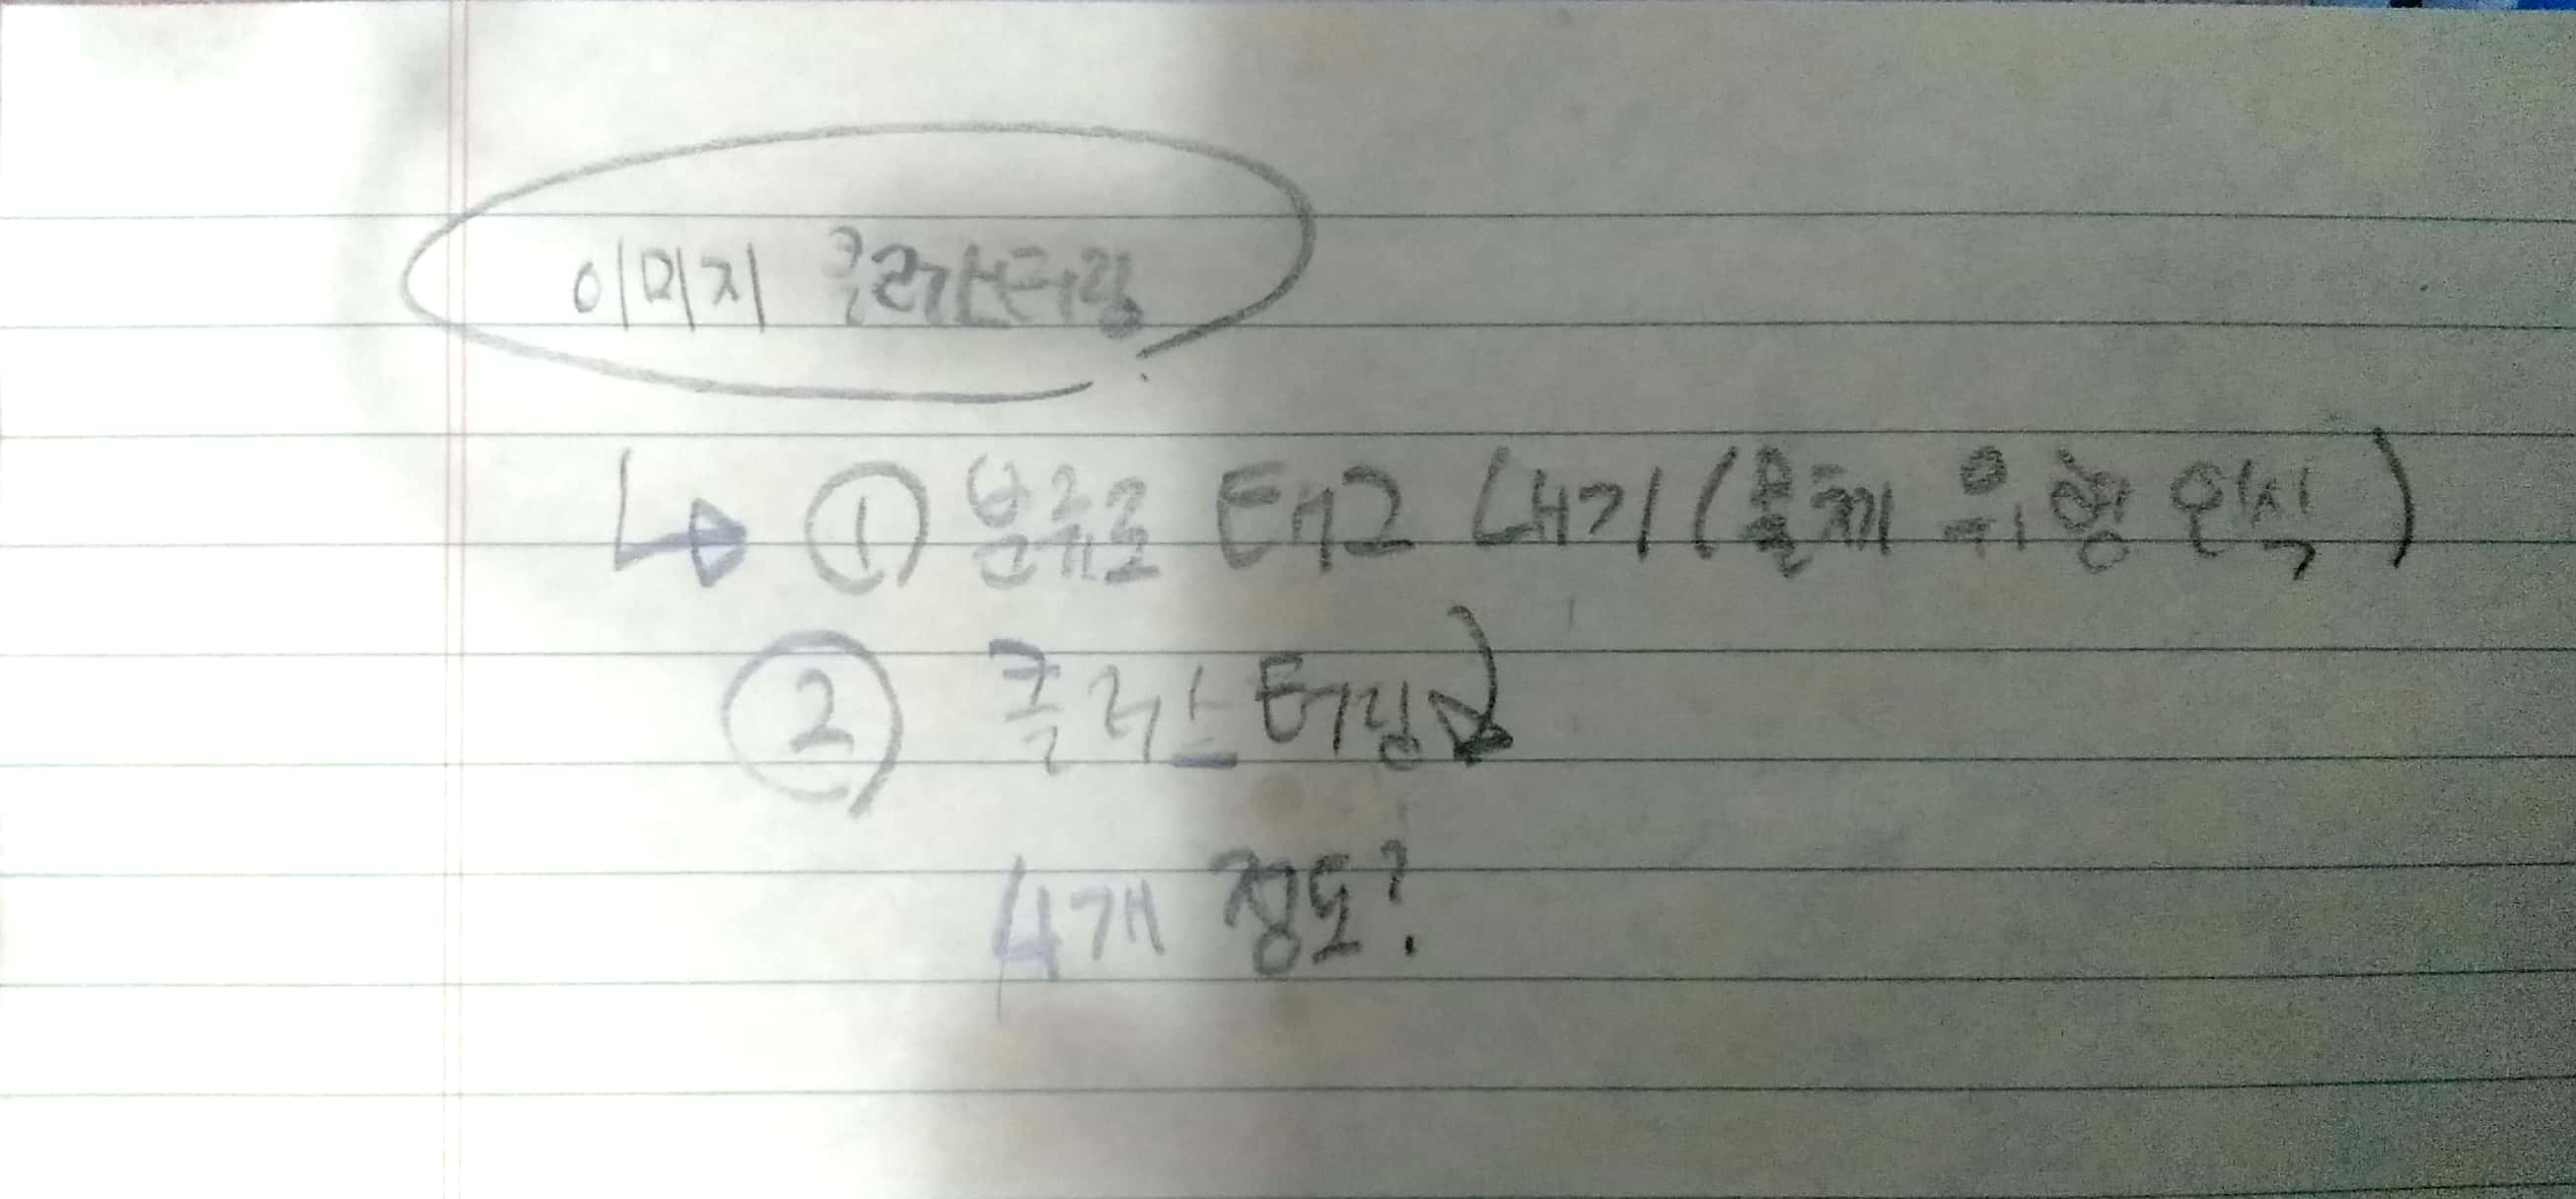 이미지 클러스터링
① 분류로 태그 내기 (물체 유형 인식)
② 클러스터링
4개 정도?